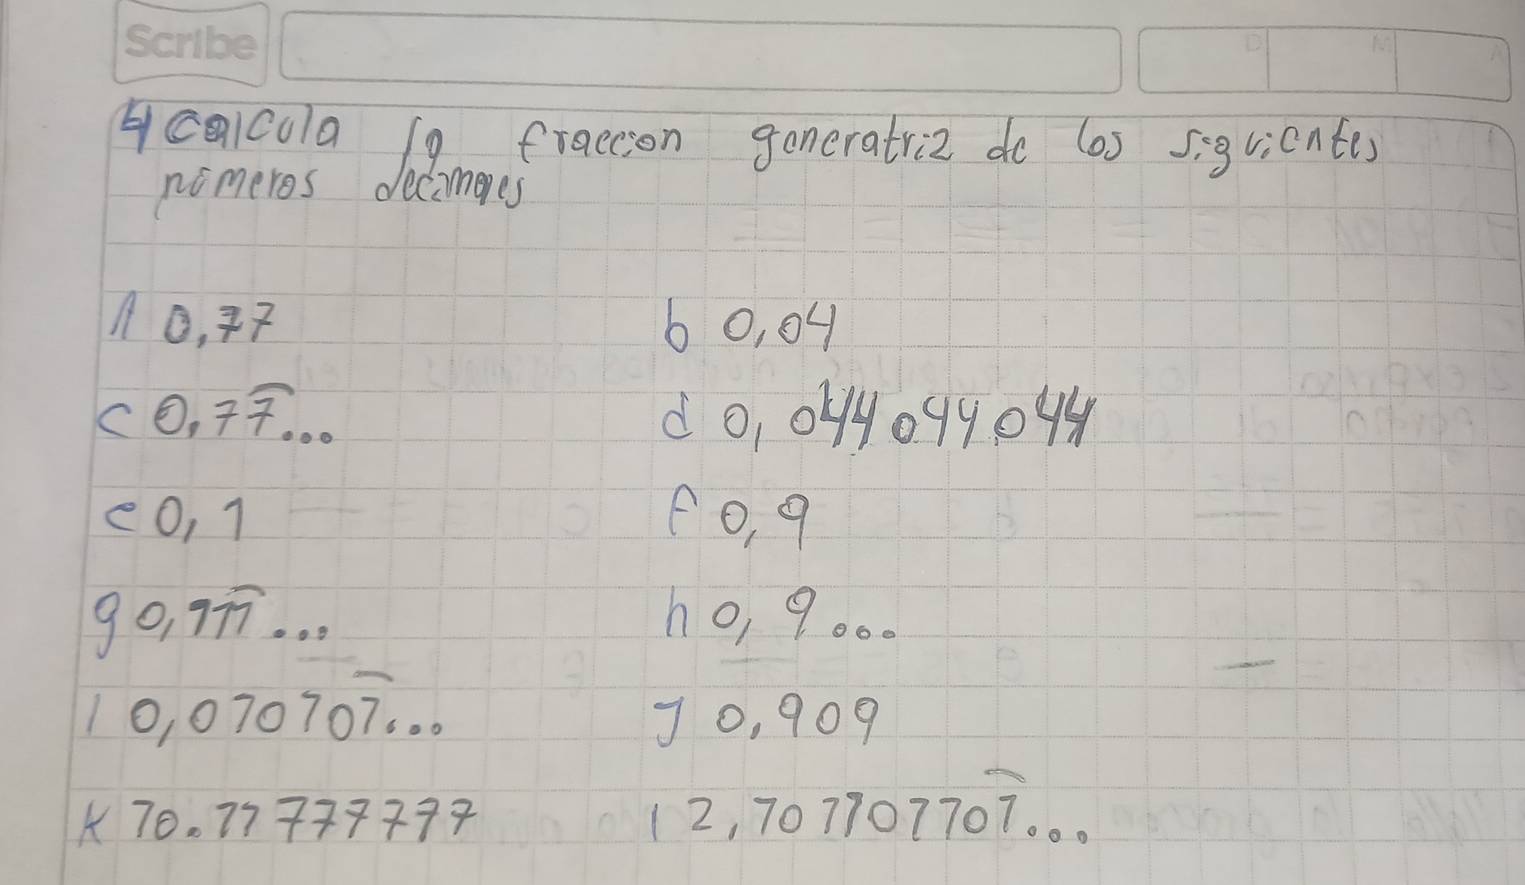 Scribe
D M A
4 calcula la fraccion generatriz de los siguientes
números decimales
A 0,77 b 0,04
c 0,77... d 0,044044044
e 0,1 f 0,9
g 0,777... h 0,9...
i 0,070707... J 0,909
K 70.77777777 l 2,707707707...